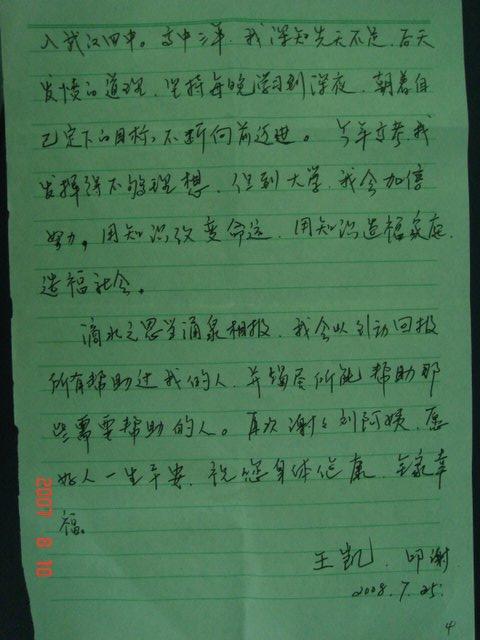 入武汉四中。高中三年,我深知先天不足,后天
发愤的道理,坚持每晚学习到深夜,朝着自
己定下的目标,不断向前迈进。今年高考,我
发挥得不够理想,但到大学,我会加倍
努力,用知识改变命运,用知识造福家庭,
造福社会。
滴水之恩当涌泉相报,我会以行动回报
所有帮助过我的人,并竭尽所能帮助那
些需要帮助的人。再次谢谢刘阿姨,愿
好人一生平安,祝您身体健康,全家幸
福。
王凯 叩谢
2008.7.25.
4
2007 8 10